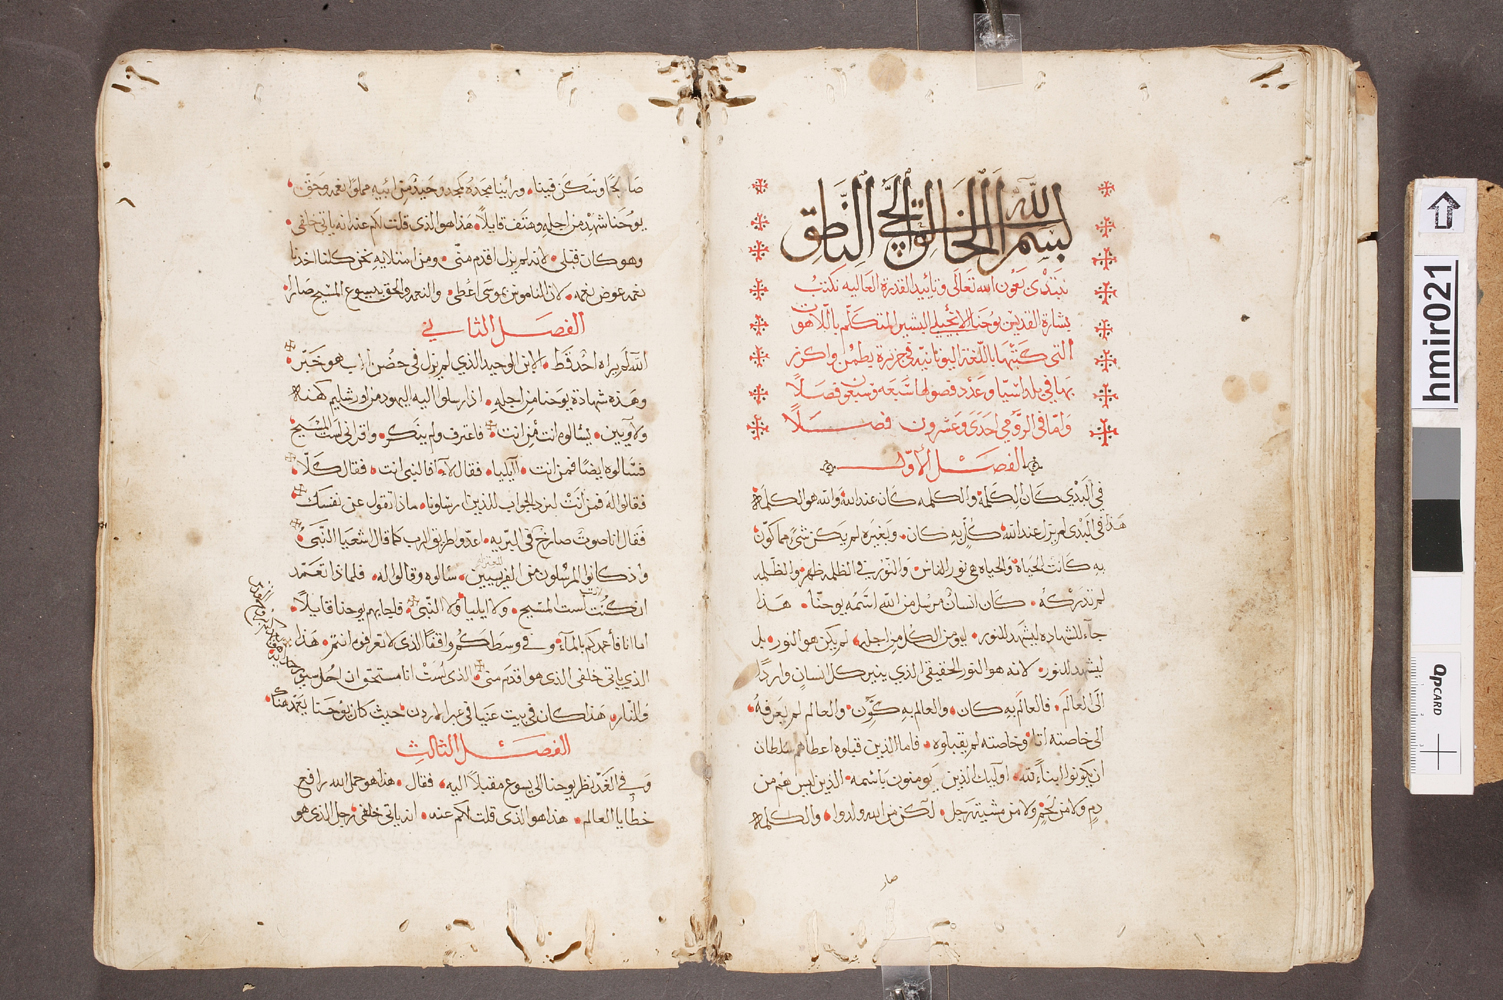 بسم الله الخالق الحي الناطق
نبتدى بعون الله تعالى وتاييد القدرة العاليه نكتب
بشارة القديس يوحنا الانجيلي البشير المتكلم باللاهوت
التى كتبها باللغة اليونانيه في جزيرة بطمن واكرز
بها في بلد اسيا وعدد فصولها تسعه وسبعون فصلاً
واما في الرومي احدى وعشرون فصلاً
الفصل الاول
في البدى كان الكلمة والكلمه كان عند الله والله هو الكلمة
هذا في البدى لم يزل عند الله كل به كان وبغيره لم يكن شيء مما كون
به كانت الحياة والحياه هي نور الناس والنور في الظلمه ظهر والظلمه
لم تدركه كان انسان مرسل من الله اسمه يوحنا هذا
جاء للشهاده ليشهد للنور ليومن الكل من اجله لم يكن هو النور بل
ليشهد للنور لانه هو النور الحقيقي الذي ينير كل انسان وارداً
الى العالم فالعالم به كان والعالم به كون والعالم لم يعرفه
الى خاصته اتا وخاصته لم يقبلوه فاما الذين قبلوه اعطاهم سلطان
ان يكونوا ابناء لله اوليك الذين يومنون باسمه الذين ليس هم من
دم ولا من لحم ولا من مشية رجل لكن من الله ولدوا والكلمة
صار
صار لحما وسكن فينا وراينا مجده كمجد وحيد من ابيه مملوا نعمه وحق
يوحنا شهد من اجله وهتف قايلاً هذا هو الذى قلت لكم عنه انه ياتى خلفي
وهو كان قبلى لانه لم يزل اقدم منى ومن امتلايه نحن كلنا اخذنا
نعمه عوض نعمه لان الناموس بموسى اعطى والنعمه والحق بيسوع المسيح صارا
الفصل الثاني
الله لم يراه احد قط الابن الوحيد الذي لم يزل في حضن اب هو خبر
وهذه شهادة يوحنا من اجله اذ ارسلوا اليه اليهود من اورشليم كهنه
ولاويين يسالوه انت من انت فاعترف ولم ينكر واقر اني لست المسيح
فسالوه ايضا فمن انت ايليا فقال لا افالنبى انت فقال كلا
فقالوا له فمن انت لنرد الجواب للذين ارسلونا ماذا تقول عن نفسك
فقال انا صوت صارخ في البريه اعدوا طريق الرب كما قال اشعيا النبي
واذ كانوا المرسلون من الفريسيين سالوه وقالوا له فلماذا تعمد
ان كنت لست المسيح ولا ايليا ولا النبى فاجابهم يوحنا قايلاً
اما انا فاعمدكم بالماء وفي وسطكم واقفاً الذى لا تعرفوه انتم هذا
الذي ياتى خلفى الذى هو اقدم منى الذى لست انا مستحق ان احل سيور
وللنار هذا كان في بيت عنيا في عبر الاردن حيث كان يوحنا يعمد هناك
الفصل الثالث
وفي الغد نظر يوحنا الى يسوع مقبلا اليه فقال هذا هو حمل الله رافع
خطايا العالم هذا هو الذى قلت لكم عنه انه ياتى خلفى رجل الذى هو
hmir021
CARD